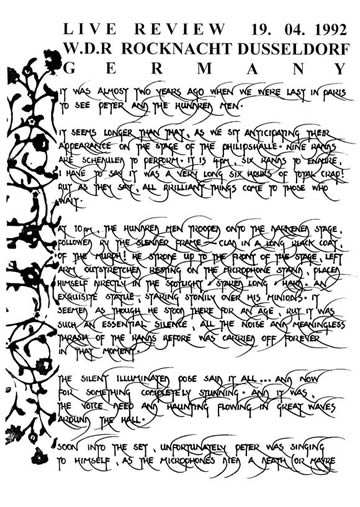 LIVE REVIEW 19. 04. 1992
W.D.R ROCKNACHT DUSSELDORF
G E R M A N Y
IT WAS ALMOST TWO YEARS AGO WHEN WE WERE LAST IN PARIS
TO SEE PETER AND THE HUNDRED MEN.
IT SEEMS LONGER THAN THAT, AS WE SIT ANTICIPATING THEIR
APPEARANCE ON THE STAGE OF THE PHILIPSHALLE. NINE BANDS
ARE SCHEDULED TO PERFORM. IT IS 4PM, SIX BANDS TO ENDURE,
I HAVE TO SAY IT WAS A VERY LONG SIX HOURS OF TOTAL CRAP!
BUT AS THEY SAY, ALL BRILLIANT THINGS COME TO THOSE WHO
WAIT.
AT 10PM, THE HUNDRED MEN TROOPED ONTO THE DARKENED STAGE,
FOLLOWED BY THE SLENDER FRAME - CLAD IN A LONG BLACK COAT,
OF THE MURPH! HE STRODE UP TO THE FRONT OF THE STAGE, LEFT
ARM OUTSTRETCHED RESTING ON THE MICROPHONE STAND, PLACED
HIMSELF DIRECTLY IN THE SPOTLIGHT. STARED LONG. HARD. AN
EXQUISITE STATUE, STARING STONILY OVER HIS MINIONS. IT
SEEMED AS THOUGH HE STOOD THERE FOR AN AGE, BUT IT WAS
SUCH AN ESSENTIAL SILENCE, ALL THE NOISE AND MEANINGLESS
THRASH OF THE BANDS BEFORE WAS CARRIED OFF FOREVER
IN THAT MOMENT.
THE SILENT ILLUMINATED POSE SAID IT ALL... AND NOW
FOR SOMETHING COMPLETELY STUNNING. AND IT WAS,
THE VOICE DEEP AND HAUNTING FLOWING IN GREAT WAVES
AROUND THE HALL.
SOON INTO THE SET, UNFORTUNATELY PETER WAS SINGING
TO HIMSELF, AS THE MICROPHONES DIED A DEATH (OR MAYBE